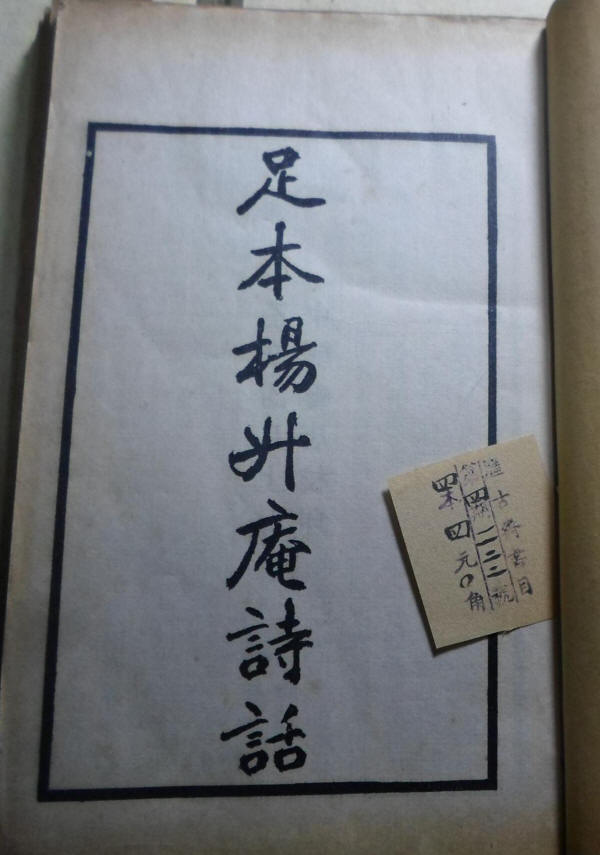 足本楊升庵詩話
古齋書目
第四期二三二號
四本四元0角